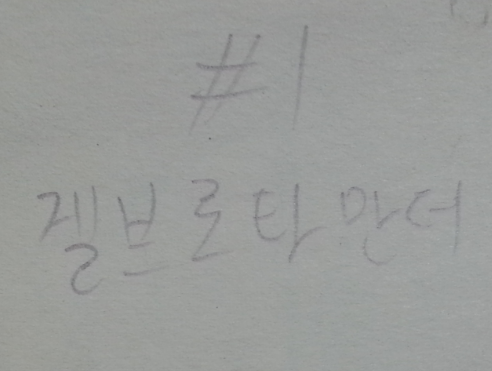 #1
겔브로타만더